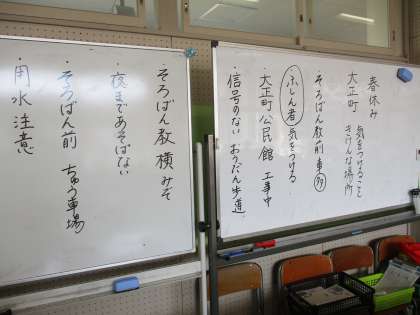 春休み
大正町 気をつけること
きけんな場所
そろばん教前 車多
ふしん者 気をつける
大正町公民館 工事中
・信号のない おうだん歩道
・そろばん教横みぞ
・夜まであそばない
・そろばん前 ちゅう車場
・用水注意